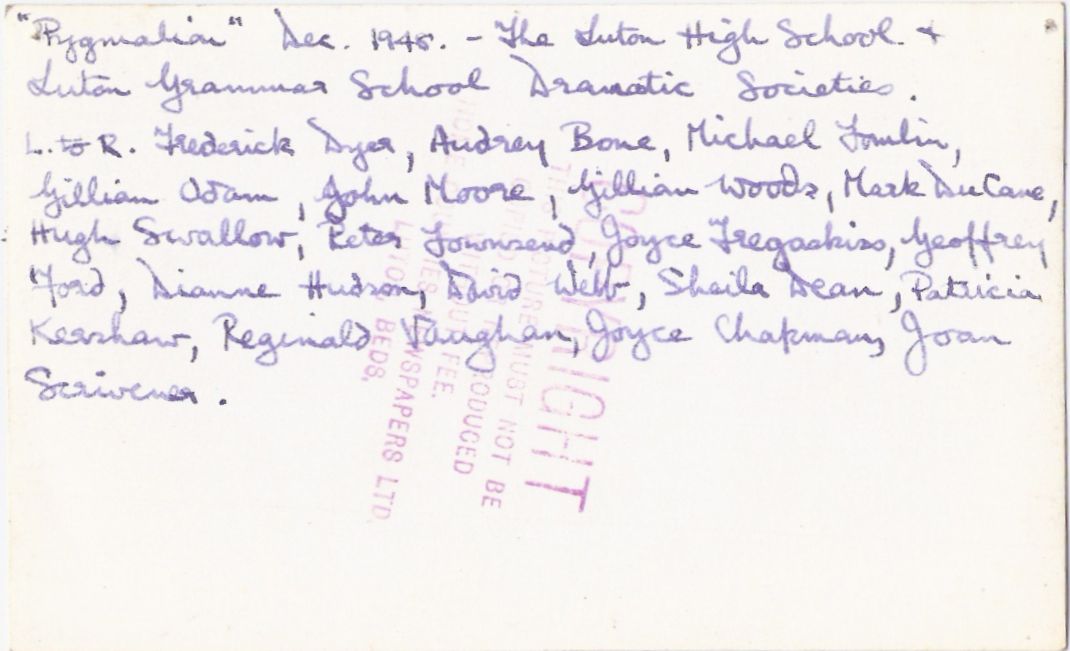 "Pygmalion" Dec. 1945. - The Luton High School &
Luton Grammar School Dramatic Societies.
L. to R. Frederick Dyer, Audrey Bone, Michael Tomlin,
Gillian Odam, John Moore, Gillian Woods, Mark DuCane,
Hugh Swallow, Peter Townsend, Joyce Tregaskiss, Geoffrey
Ford, Dianne Hudson, David Webb, Sheila Dean, Patricia
Kershaw, Reginald Vaughan, Joyce Chapman, Joan
Scrivener.
COPYRIGHT
THIS PICTURE MUST NOT BE
REPRODUCED
WITHOUT FEE.
NEWSPAPERS LTD.
LUTON, BEDS.